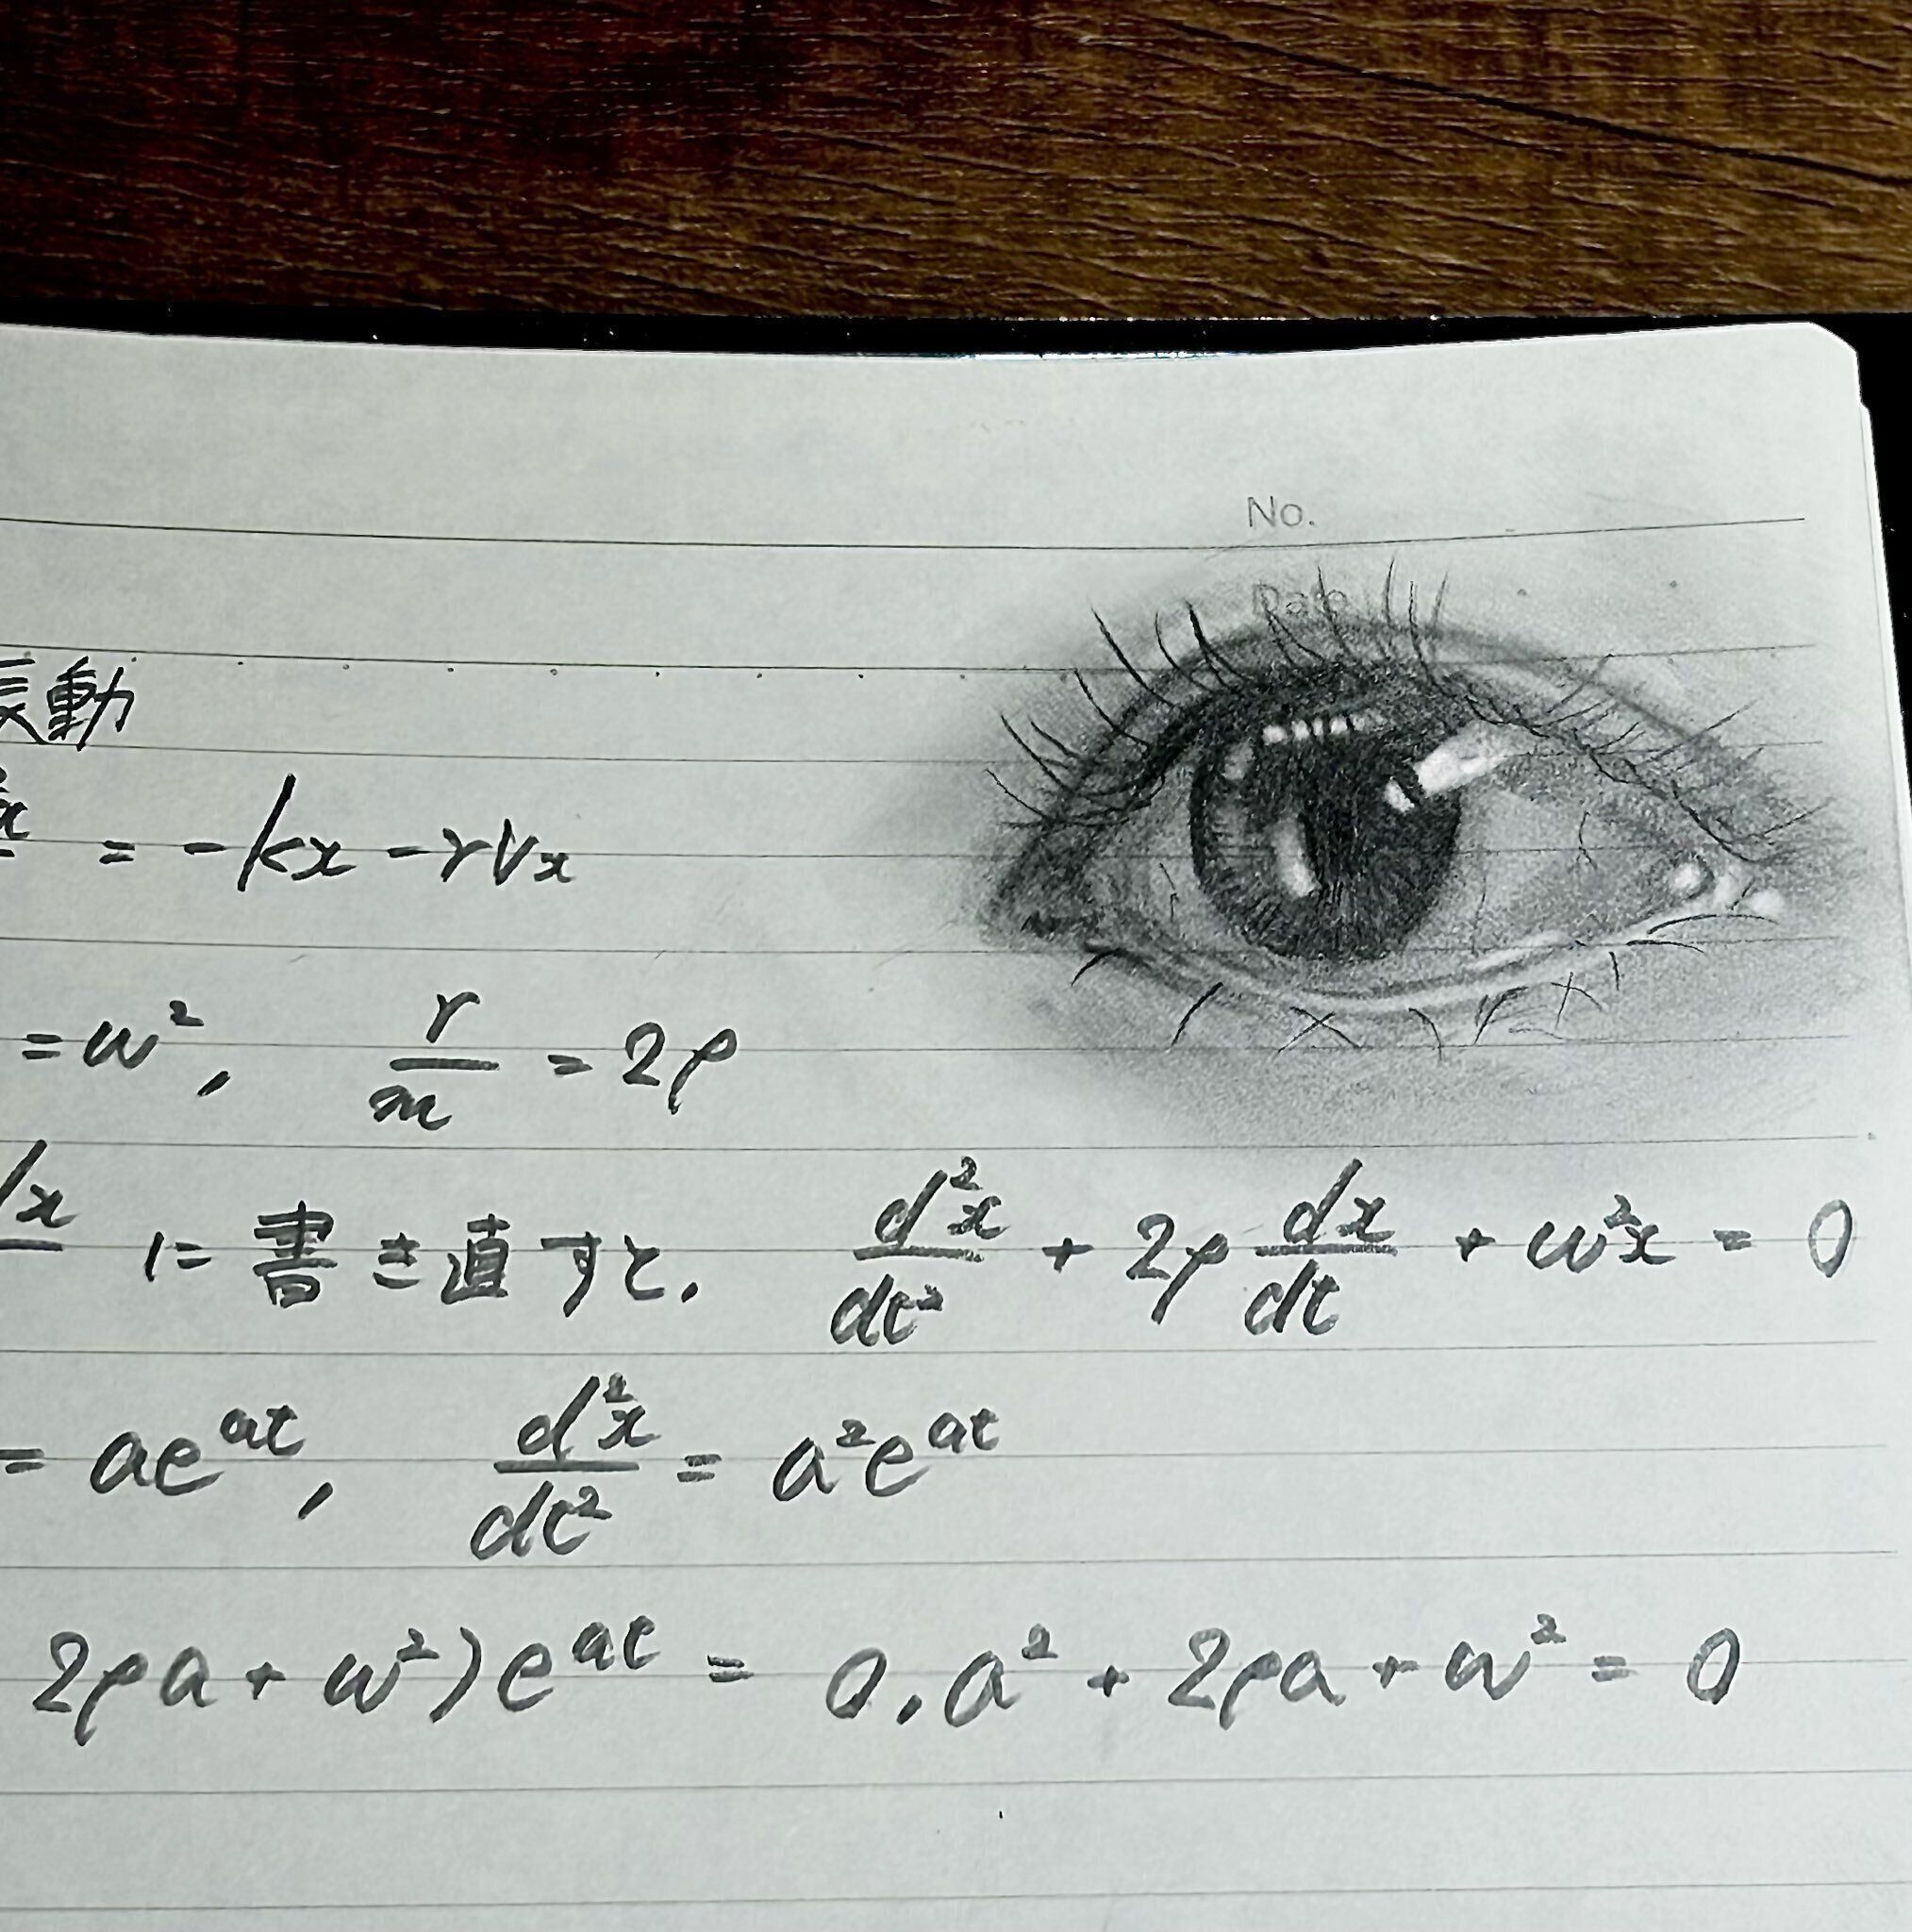 No.
Date
振動
= -kx - rVx
= ω², r/m = 2ρ
に書き直すと, d²x/dt² + 2ρ dx/dt + ω²x = 0
= ae^{at}, d²x/dt² = a²e^{at}
2ρa + ω²)e^{at} = 0, a² + 2ρa + ω² = 0